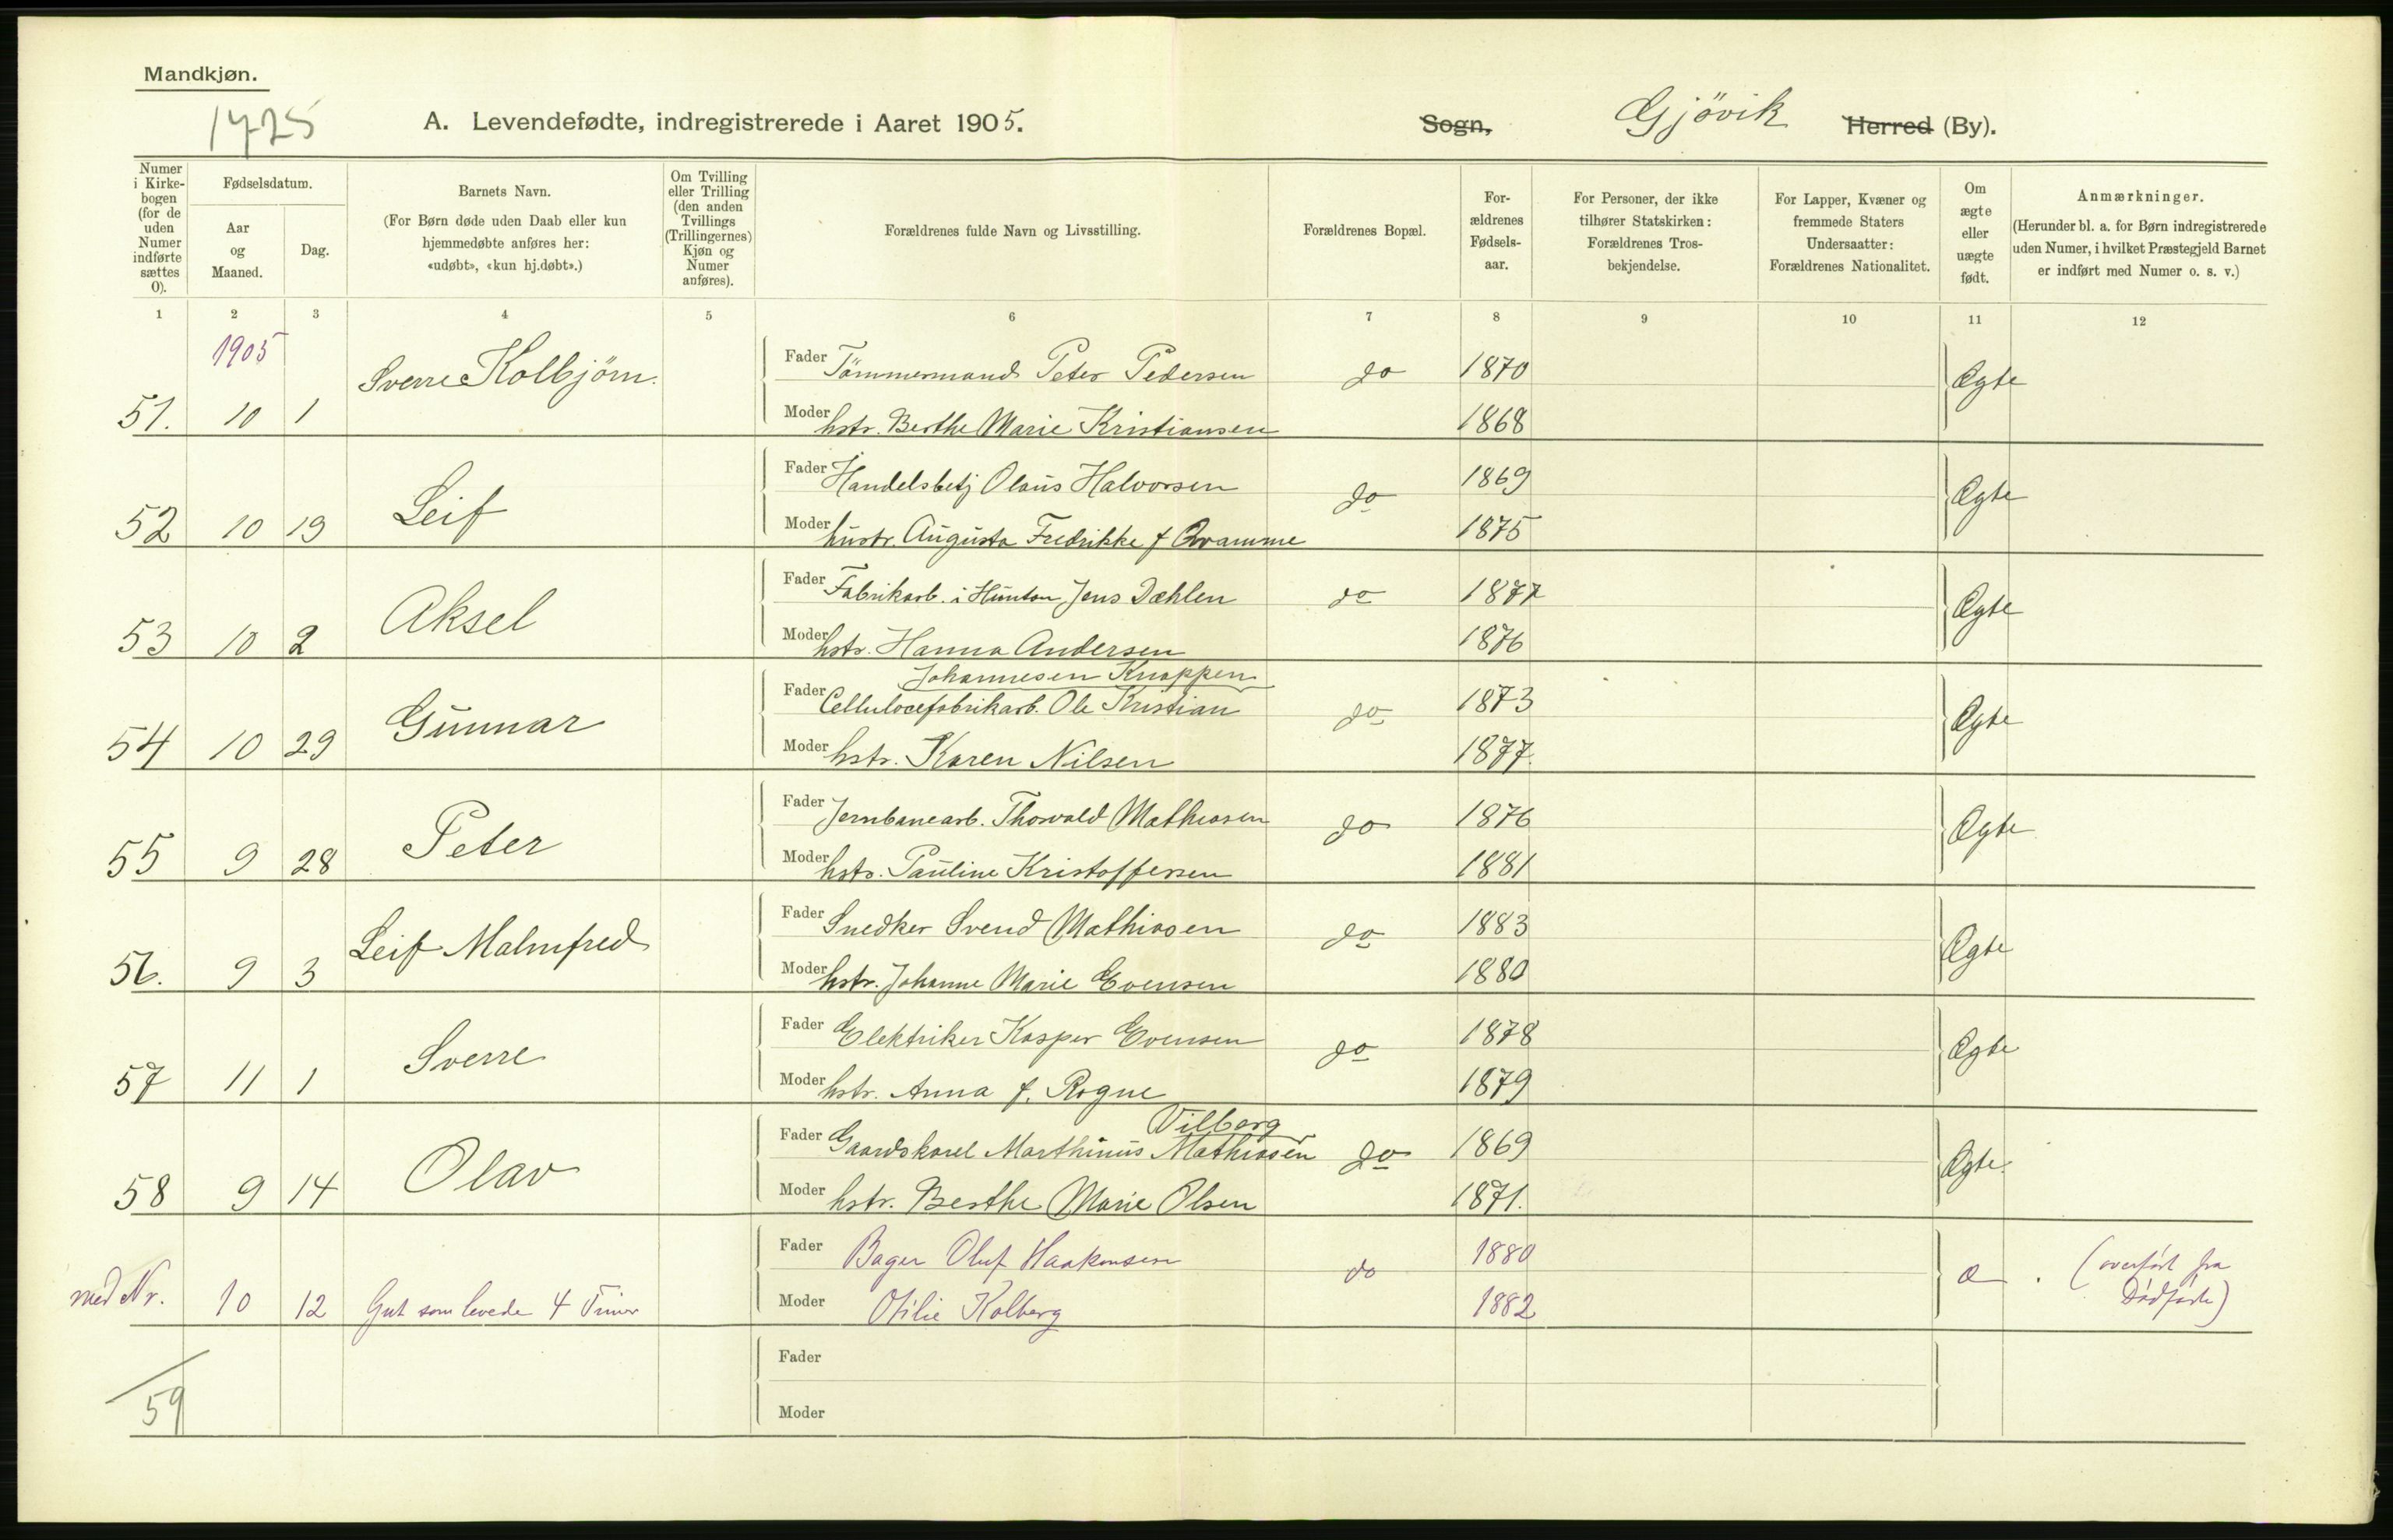 Mandkjøn.
1725
A. Levendefødte, indregistrerede i Aaret 1905.
Sogn, Gjövik Herred (By).
Numer i Kirkebogen (for de uden Numer indførte sættes 0).
Fødselsdatum.
Aar og Maaned.
Dag.
Barnets Navn.
(For Børn døde uden Daab eller kun hjemmedøbte anføres her: «udøbt», «kun hj.døbt».)
Om Tvilling eller Trilling (den anden Tvillings (Trillingernes) Kjøn og Numer anføres).
Forældrenes fulde Navn og Livsstilling.
Forældrenes Bopæl.
Forældrenes Fødselsaar.
For Personer, der ikke tilhører Statskirken: Forældrenes Trosbekjendelse.
For Lapper, Kvæner og fremmede Staters Undersaatter: Forældrenes Nationalitet.
Om ægte eller uægte født.
Anmærkninger.
(Herunder bl. a. for Børn indregistrerede uden Numer, i hvilket Præstegjeld Barnet er indført med Numer o. s. v.)
1 2 3 4 5 6 7 8 9 10 11 12
1905
51. 10 1 Sverre Kolbjörn.
Fader Tömmermand Peter Pedersen do 1870 Ægte
Moder hstr. Berthe Marie Kristiansen 1868
52 10 19 Leif
Fader Handelsbetj Olaüs Halvorsen do 1869 Ægte
Moder hustr. Augusta Fredrikke f Qvamme 1875
53 10 2 Aksel
Fader Fabrikarb. i Hunton Jens Dæhlen do 1877 Ægte
Moder hstr. Hanna Andersen 1876
54 10 29 Gunnar
Johannesen Knappen
Fader Cellulosefabrikarb. Ole Kristian do 1873 Ægte
Moder hstr. Karen Nilsen 1877.
55 9 28 Peter
Fader Jernbanearb. Thorvald Mathiasen do 1876 Ægte
Moder hstr. Pauline Kristoffersen 1881
56. 9 3 Leif Malmfred
Fader Snedker Svend Mathiasen do 1883 Ægte
Moder hstr. Johanne Marie Evensen 1880
57 11 1 Sverre
Fader Elektriker Kasper Evensen do 1878 Ægte
Moder hstr. Anna f. Rogne 1879
58 9 14 Olav
Vilberg
Fader Gaardskarl Marthinus Mathiasen do 1869 Ægte
Moder hstr. Berthe Marie Olsen 1871.
med Nr. 10 12 Gut som levede 4 Timer
Fader Bager Oluf Haakonsen do 1880 æ . (overført fra Dødfødte)
Moder Otilie Kolberg 1882
59
Fader
Moder